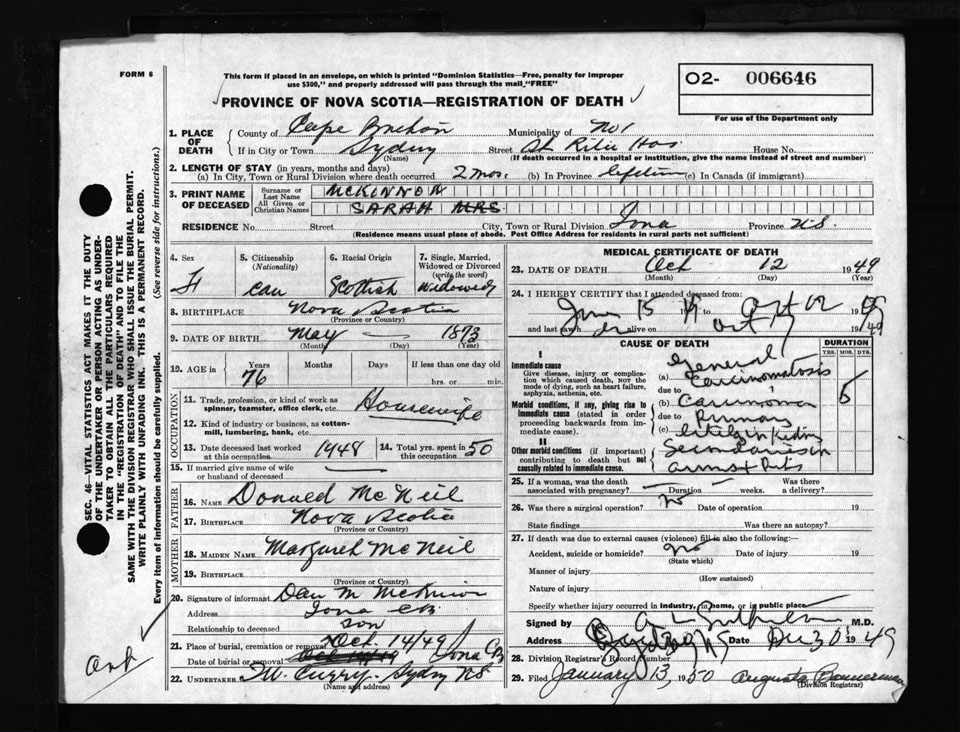 FORM 6
This form if placed in an envelope, on which is printed "Dominion Statistics—Free, penalty for improper
use $300," and properly addressed will pass through the mail, "FREE"
O2- 006646
For use of the Department only
PROVINCE OF NOVA SCOTIA—REGISTRATION OF DEATH
1. PLACE OF DEATH County of Cape Breton Municipality of No 1
If in City or Town Sydney Street St Rita Hos. House No.
(Name) (If death occurred in a hospital or institution, give the name instead of street and number)
2. LENGTH OF STAY (in years, months and days)
(a) In City, Town or Rural Division where death occurred 2 mos. (b) In Province lifetime (c) In Canada (if immigrant)
3. PRINT NAME OF DECEASED Surname or Last Name MCKINNON
All Given or Christian Names SARAH MRS
RESIDENCE No. Street City, Town or Rural Division Iona Province N.S.
(Residence means usual place of abode. Post Office Address for residents in rural parts not sufficient)
4. Sex F
5. Citizenship (Nationality) Can
6. Racial Origin Scottish
7. Single, Married, Widowed or Divorced (write the word) Widowed
8. BIRTHPLACE Nova Scotia
(Province or Country)
9. DATE OF BIRTH May — 1873
(Month) (Day) (Year)
10. AGE in Years Months Days If less than one day
76 hrs. or min.
OCCUPATION
11. Trade, profession, or kind of work as spinner, teamster, office clerk, etc. Housewife
12. Kind of industry or business, as cotton-mill, lumbering, bank, etc.
13. Date deceased last worked at this occupation 1948 14. Total yrs. spent in this occupation 50
15. If married give name of wife or husband of deceased —
FATHER
16. NAME Donald McNeil
17. BIRTHPLACE Nova Scotia
(Province or Country)
MOTHER
18. MAIDEN NAME Margaret McNeil
19. BIRTHPLACE
(Province or Country)
20. Signature of informant Dan M McKinnon
Address Iona CB
Relationship to deceased son
21. Place of burial, cremation or removal Oct. 14/49
Date of burial or removal Iona CB
22. UNDERTAKER T.W. Curry. Sydney NS
(Name and address)
MEDICAL CERTIFICATE OF DEATH
23. DATE OF DEATH Oct 12 1949
(Month) (Day) (Year)
24. I HEREBY CERTIFY that I attended deceased from:
June 15 19 49 Oct 12 19 49
and last saw h alive on Oct 19 49
CAUSE OF DEATH
DURATION
YRS. MOS. DYS.
I
Immediate cause
Give disease, injury or complication which caused death, not the mode of dying, such as heart failure, asphyxia, asthenia, etc.
(a) General Carcinomatosis
due to
Morbid conditions, if any, giving rise to immediate cause (stated in order proceeding backwards from immediate cause).
(b) Carcinoma 5
due to Primary
(c) in Kidney
II
Other morbid conditions (if important) contributing to death but not causally related to immediate cause.
Secondaries in
arms & Ribs
25. If a woman, was the death associated with pregnancy? — Duration — weeks. Was there a delivery?
26. Was there a surgical operation? No Date of operation 19
State findings Was there an autopsy?
27. If death was due to external causes (violence) fill in also the following:—
Accident, suicide or homicide? no Date of injury 19
(State which)
Manner of injury
(How sustained)
Nature of injury
Specify whether injury occurred in industry, in home, or in public place
Signed by M.D.
Address Sydney NS Date Dec 30 1949
28. Division Registrar's Record Number
29. Filed January 13, 1950 Augusta Bannerman
(Division Registrar)
SEC. 46—VITAL STATISTICS ACT MAKES IT THE DUTY
OF THE UNDERTAKER OR PERSON ACTING AS UNDER-
TAKER TO OBTAIN ALL THE PARTICULARS REQUIRED
IN THE "REGISTRATION OF DEATH" AND TO FILE THE
SAME WITH THE DIVISION REGISTRAR WHO SHALL ISSUE THE BURIAL PERMIT.
WRITE PLAINLY WITH UNFADING INK. THIS IS A PERMANENT RECORD.
Every item of information should be carefully supplied. (See reverse side for instructions.)